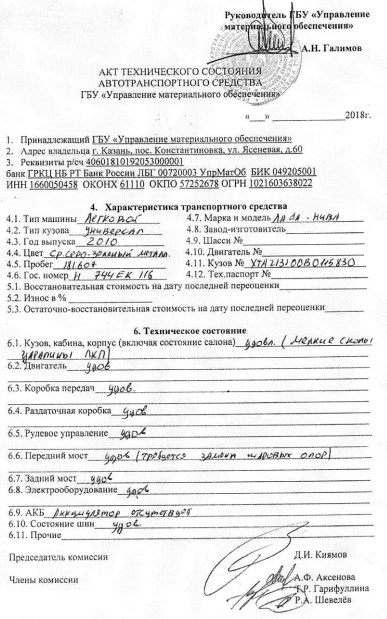 Руководитель ГБУ «Управление
материального обеспечения»
А.Н. Галимов
АКТ ТЕХНИЧЕСКОГО СОСТОЯНИЯ
АВТОТРАНСПОРТНОГО СРЕДСТВА
ГБУ «Управление материального обеспечения»
«___»____________2018г.
1. Принадлежащий ГБУ «Управление материального обеспечения»
2. Адрес владельца г. Казань, пос. Константиновка, ул. Ясеневая, д.60
3. Реквизиты р/сч 40601810192053000001
банк ГРКЦ НБ РТ Банк России ЛБГ 00720003 УпрМатОб БИК 049205001
ИНН 1660050458 ОКОНХ 61110 ОКПО 57252678 ОГРН 1021603638022
4. Характеристика транспортного средства
4.1. Тип машины Легковой 4.7. Марка и модель Лада-Нива
4.2. Тип кузова универсал 4.8. Завод-изготовитель
4.3. Год выпуска 2010 4.9. Шасси №
4.4. Цвет Ср.серо-зеленый металл. 4.10. Двигатель №
4.5. Пробег 181607 4.11. Кузов № XTA213100B0115830
4.6. Гос. номер Н 744 ЕК 116 4.12. Тех.паспорт №
5.1. Восстановительная стоимость на дату последней переоценки
5.2. Износ в %
5.3. Остаточно-восстановительная стоимость на дату последней переоценки
6. Техническое состояние
6.1. Кузов, кабина, корпус (включая состояние салона) удовл. (мелкие сколы
царапины ЛКП)
6.2. Двигатель удов
6.3. Коробка передач удов.
6.4. Раздаточная коробка удов
6.5. Рулевое управление удов
6.6. Передний мост удов (требуется замена шаровых опор)
6.7. Задний мост удов
6.8. Электрооборудование удов
6.9. АКБ Аккумулятор отсутствует
6.10. Состояние шин удов.
6.11. Прочие
Председатель комиссии Д.И. Киямов
Члены комиссии А.Ф. Аксенова
Т.Р. Гарифуллина
Р.А. Шевелёв